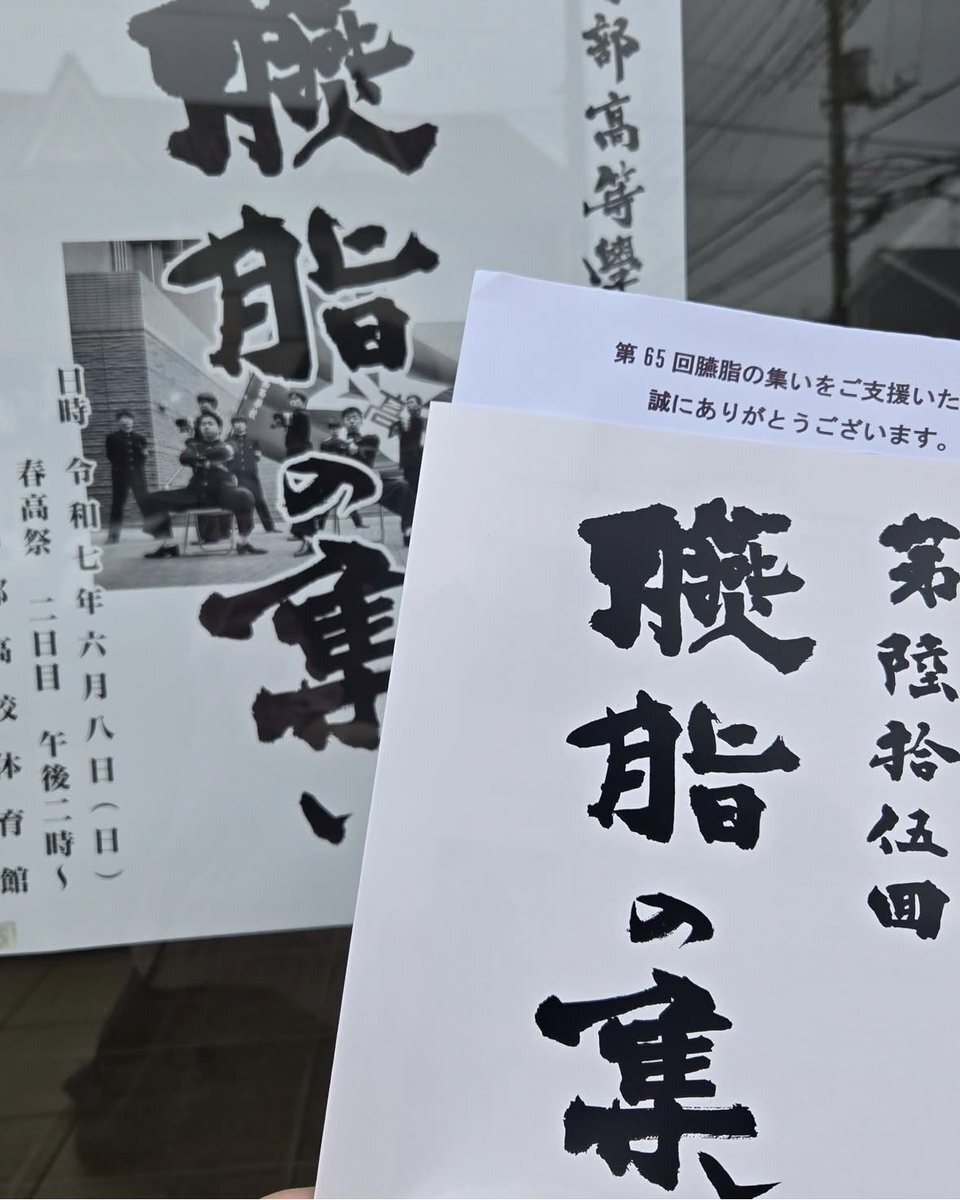 部高等學
臙脂の集い
日時 令和七年六月八日(日)
春高祭 二日目 午後二時~
部高校体育館
第65回臙脂の集いをご支援いた
誠にありがとうございます。
第陸拾伍回
臙脂の集い